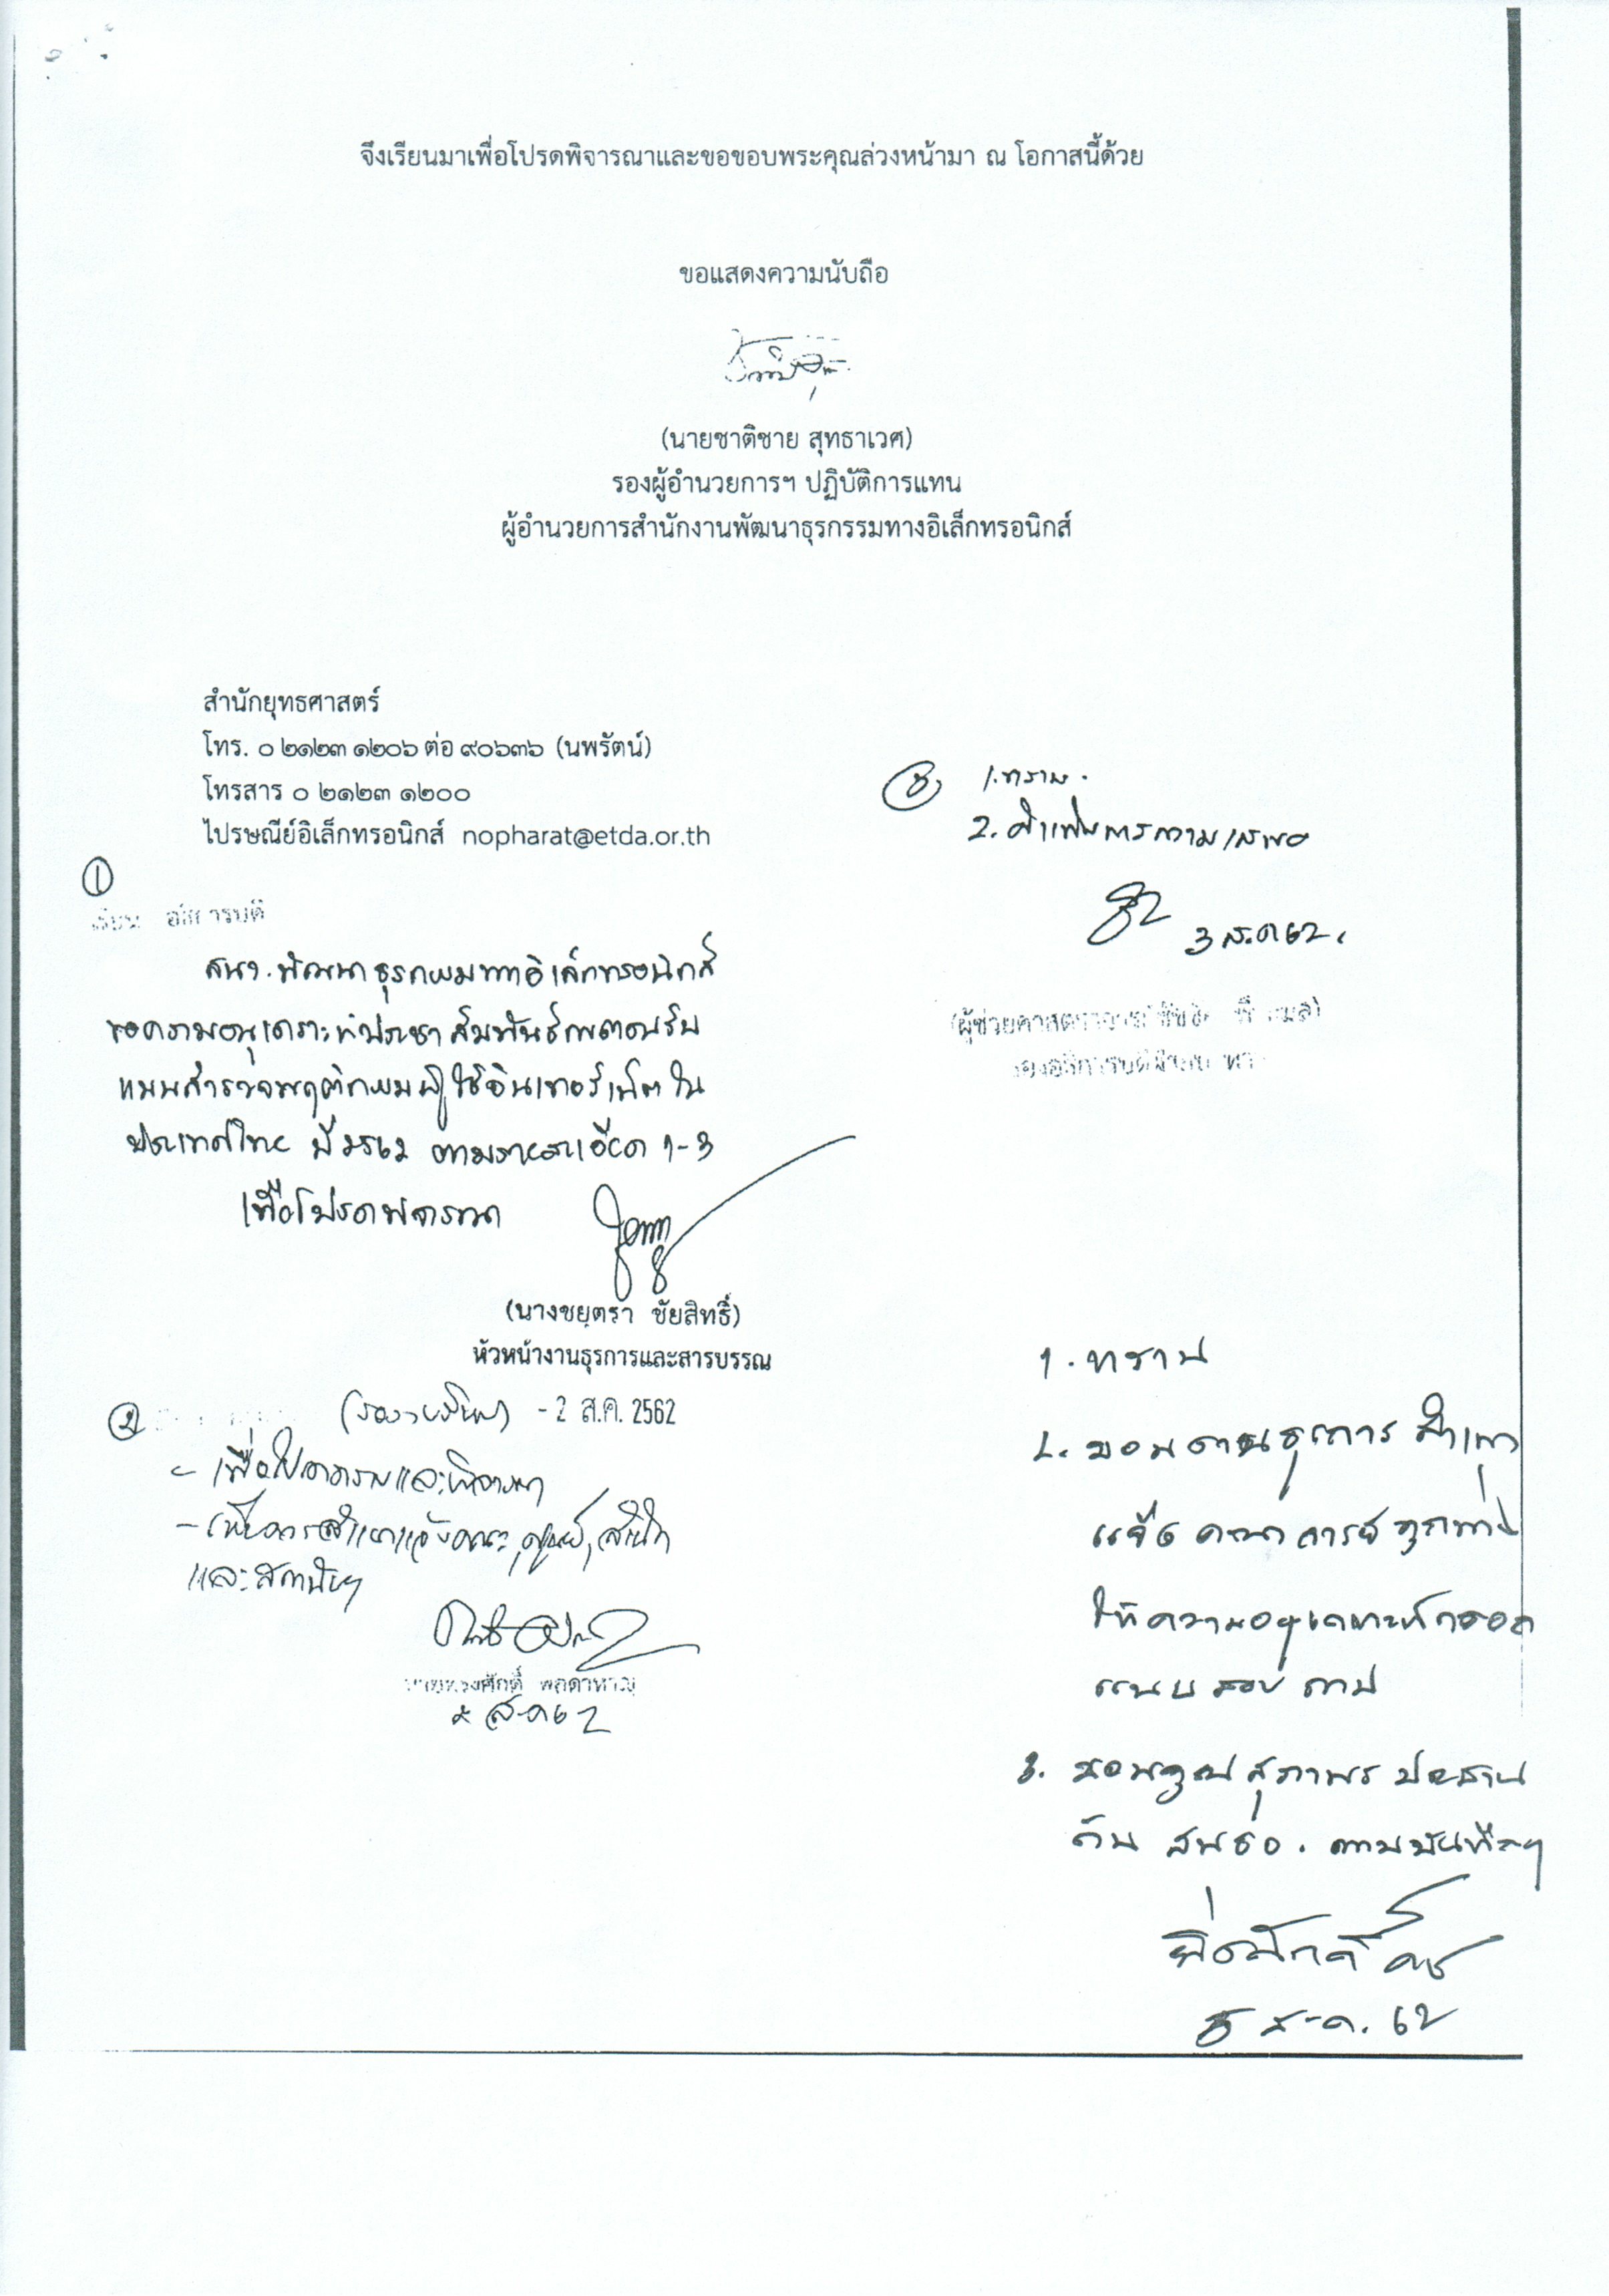 จึงเรียนมาเพื่อโปรดพิจารณาและขอขอบพระคุณล่วงหน้ามา ณ โอกาสนี้ด้วย
ขอแสดงความนับถือ
(นายชาติชาย สุทธาเวศ)
รองผู้อำนวยการฯ ปฏิบัติการแทน
ผู้อำนวยการสำนักงานพัฒนาธุรกรรมทางอิเล็กทรอนิกส์
สำนักยุทธศาสตร์
โทร. ๐ ๒๑๒๓ ๑๒๐๖ ต่อ ๙๐๖๓๖ (นพรัตน์)
โทรสาร ๐ ๒๑๒๓ ๑๒๐๐
ไปรษณีย์อิเล็กทรอนิกส์ nopharat@etda.or.th
1
เรียน อธิการบดี
สนง.พัฒนาธุรกรรมทางอิเล็กทรอนิกส์
ขอความอนุเคราะห์ประชาสัมพันธ์การตอบรับ
แบบสำรวจพฤติกรรมผู้ใช้อินเทอร์เน็ตใน
ประเทศไทย ปี 2562 ตามรายละเอียด 1-3
เพื่อโปรดพิจารณา
(นางชยุตรา ชัยสิทธิ์)
หัวหน้างานธุรการและสารบรรณ
- 2 ส.ค. 2562
2
- เพื่อโปรดทราบและพิจารณา
- เห็นควรสำเนาแจ้งคณะ, ศูนย์, สำนัก
และสถาบันฯ
ส.ค. 62
3
1. ทราบ.
2. ดำเนินการตามเสนอ
3 ส.ค. 62.
1. ทราบ
2. มอบงานธุรการ สำเนา
แจ้งคณาจารย์ทุกท่าน
ให้ความอนุเคราะห์กรอก
แบบสอบถาม
3. มอบคุณสุภาพร ประสาน
กับ สพธอ. ตามบันทึกฯ
5 ส.ค. 62